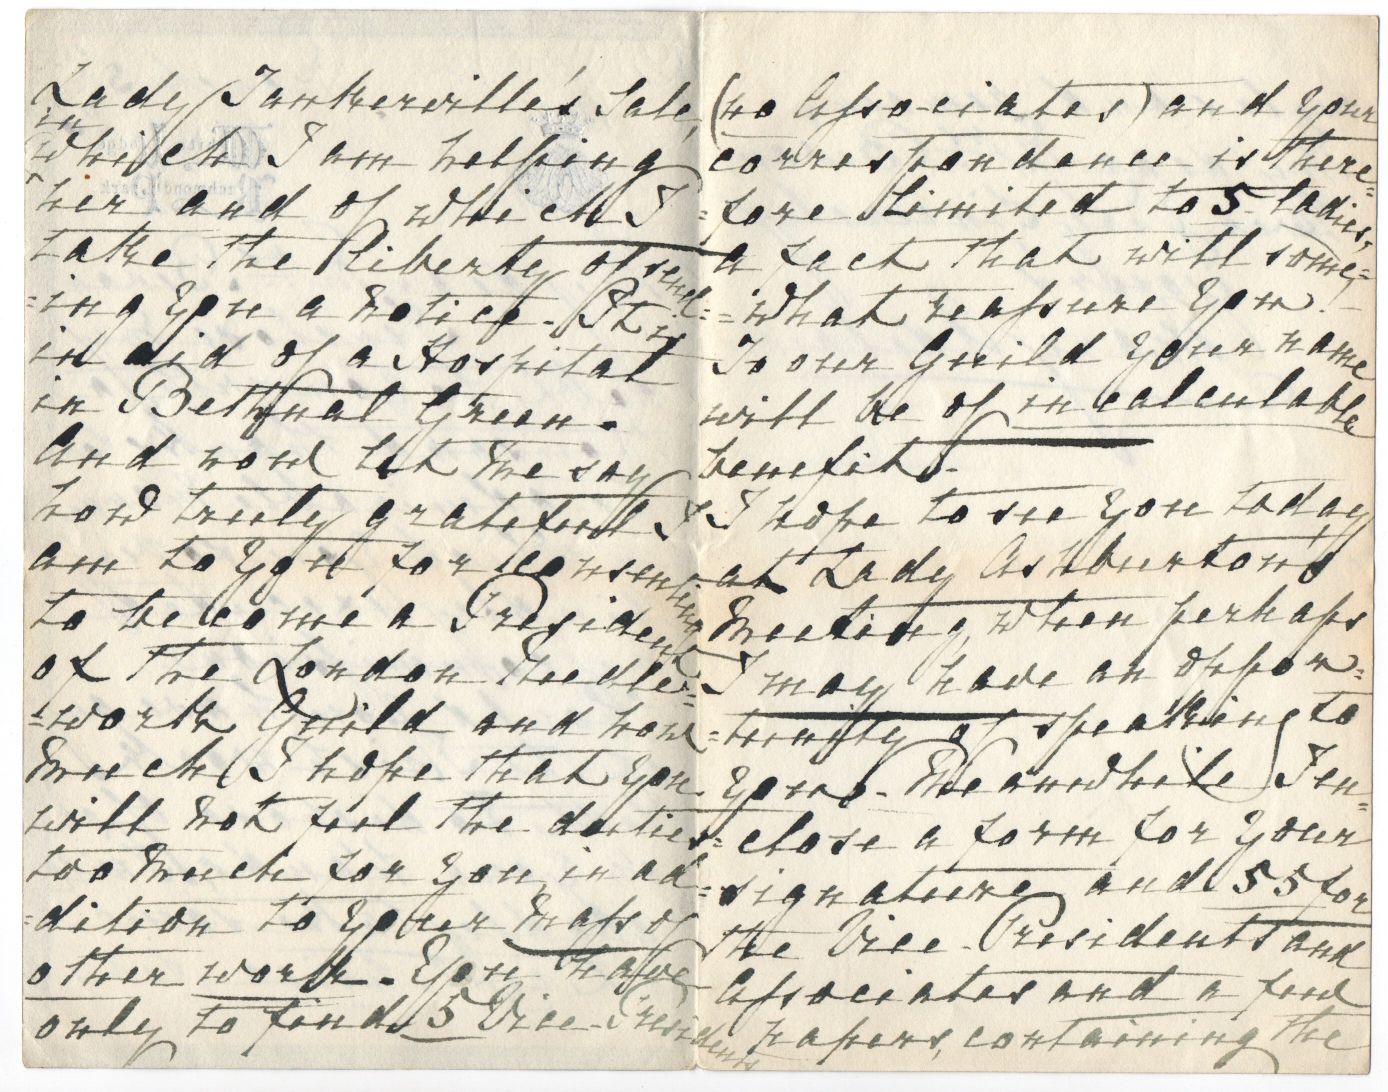 Lady Tankerville's Sale,
in
which I am helping
her and of which I
take the liberty of send=
=ing you a notice. It is
in aid of a Hospital
in Bethnal Green.
And now let me say
how truly grateful I
am to you for consenting
to become a President
of the London Needle=
=work Guild and how
much I hope that you
will not feel the duties
too much for you, in ad=
=dition to your mass of
other work. You have
only to find 5 Vice-Presidents
(no Associates) and your
correspondence is there=
=fore limited to 5 ladies,
a fact that will some=
=what reassure you.
To our Guild your name
will be of incalculable
benefit.
I hope to see you today
at Lady Ashburton's
Meeting, when perhaps
I may have an oppor=
=tunity of speaking to
you. Meanwhile I en=
=close a form for your
signature and 55 for
the Vice-Presidents and
Associates and a few
papers, containing the